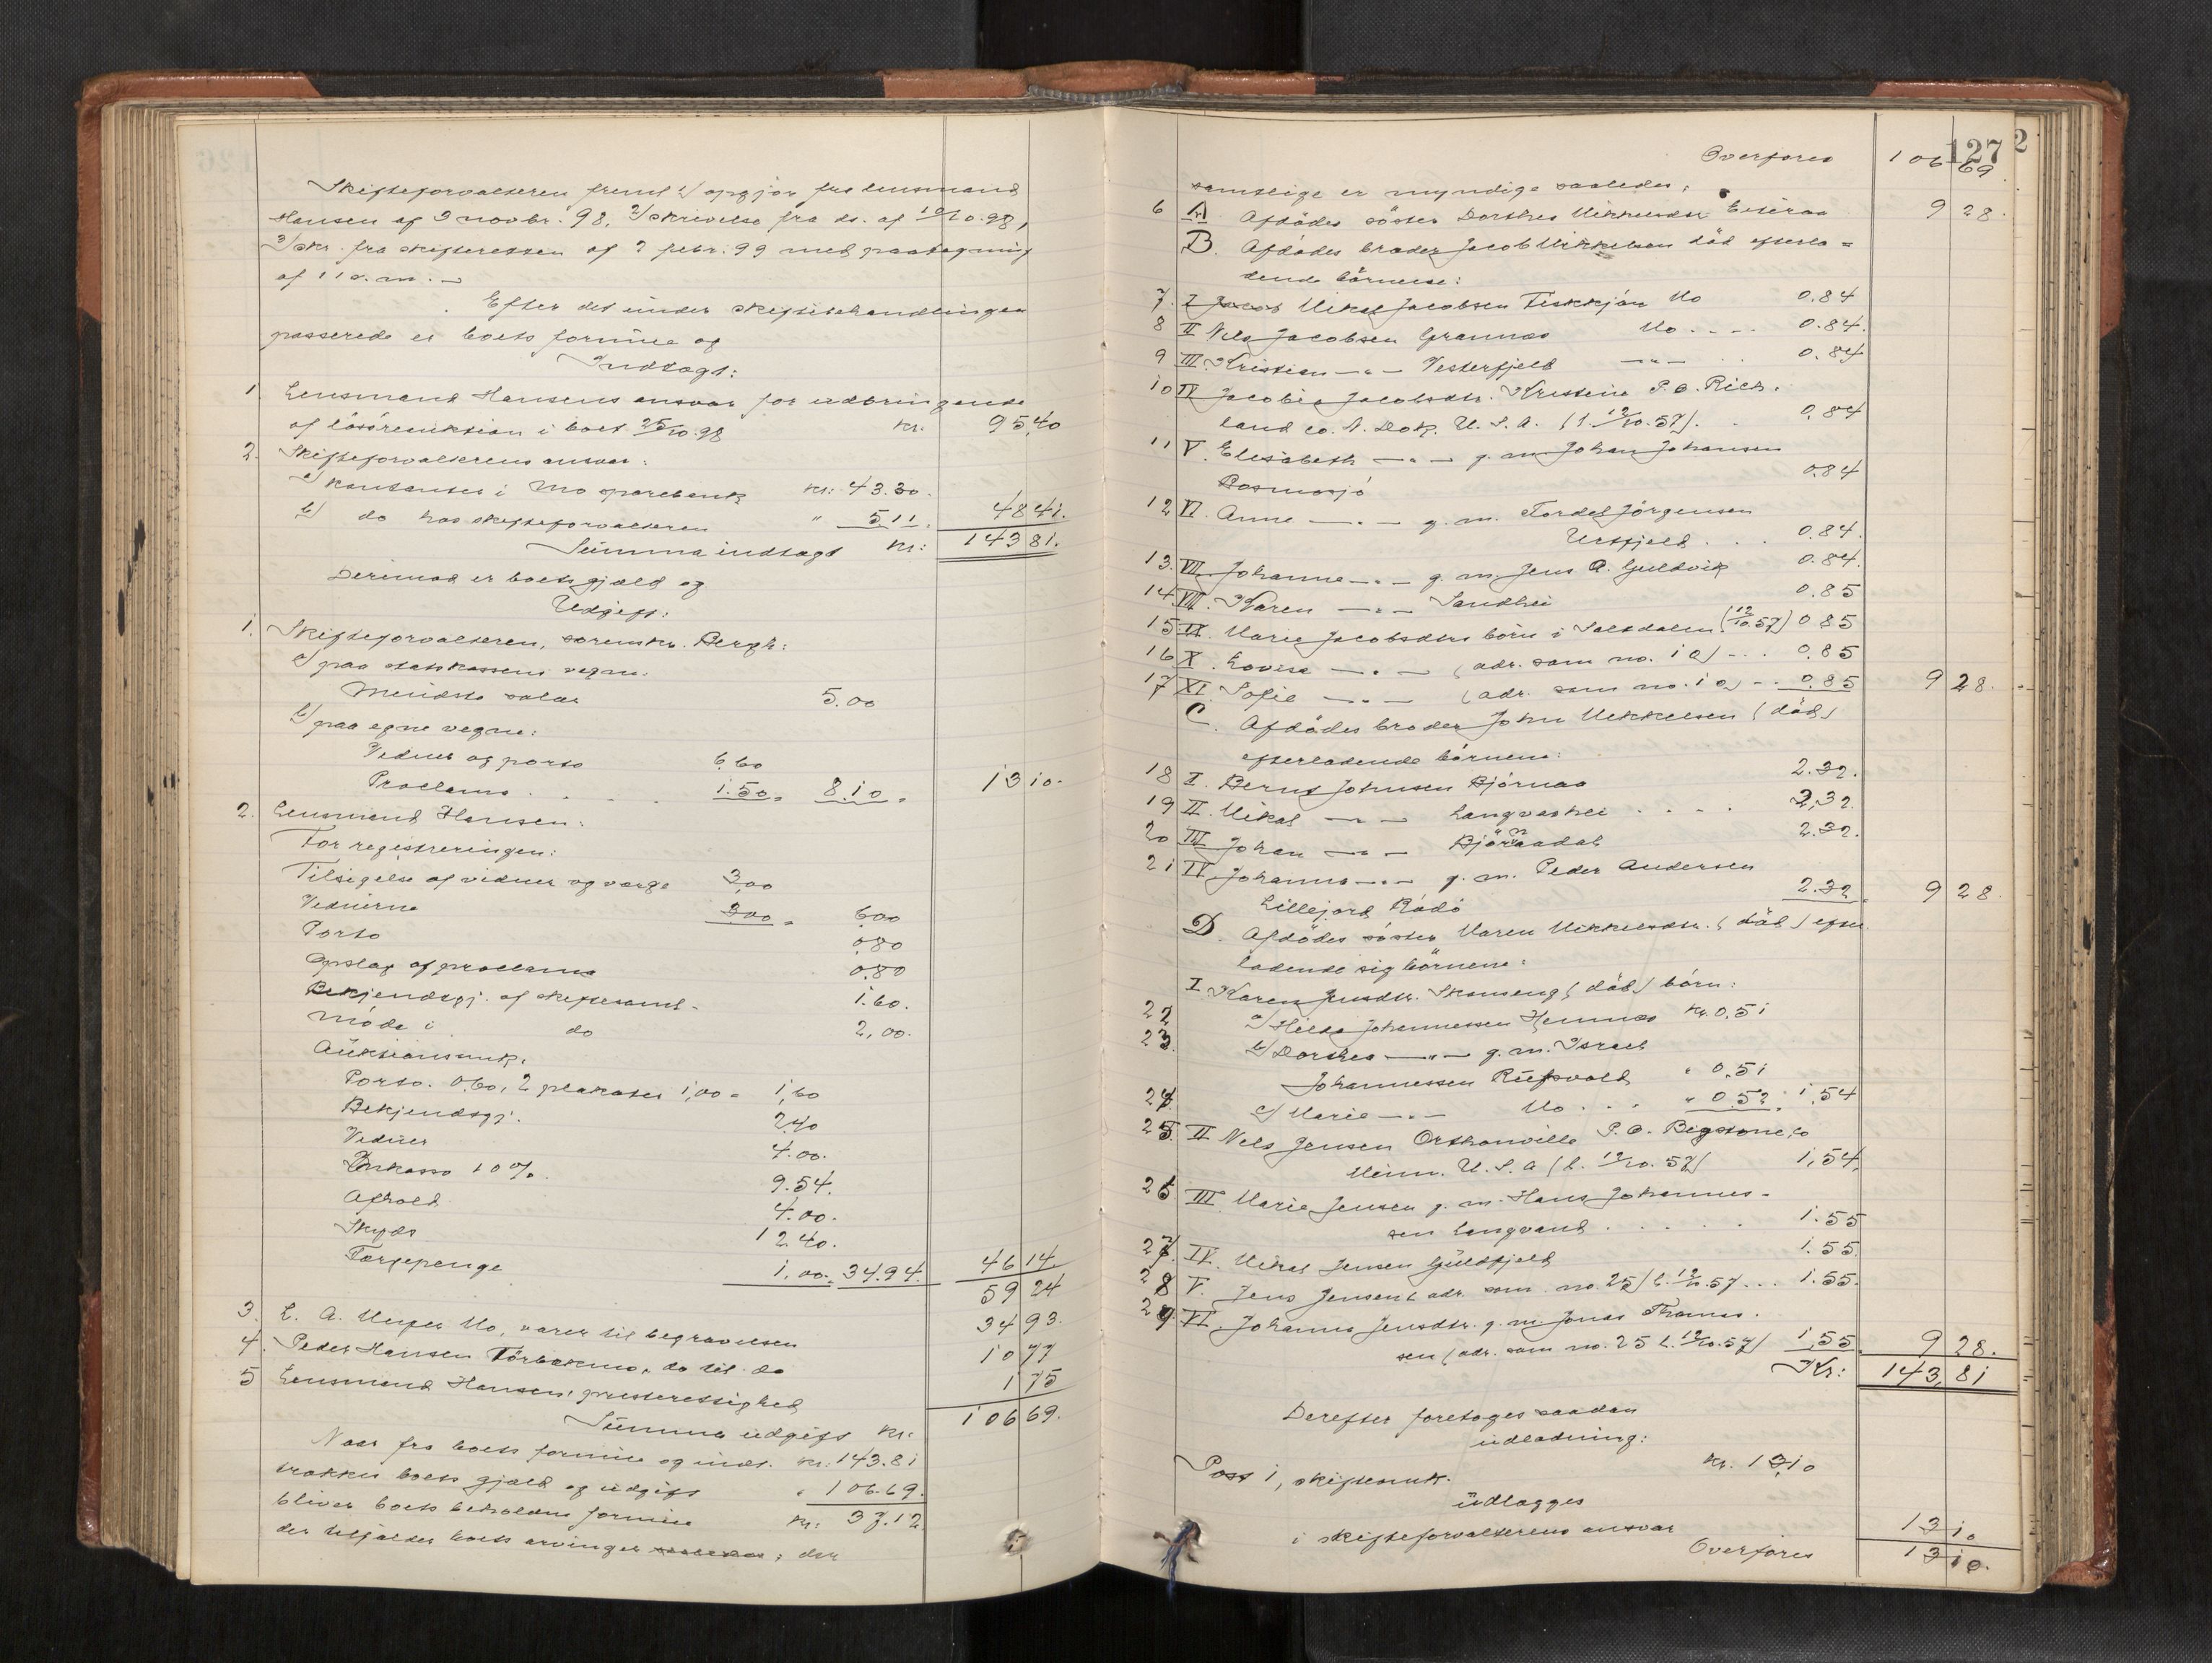 Skifteforvalteren freml. 1/ opgjør fra lensmand
Hansen af 9 novbr. 98, 2/ skrivelse fra ds. af 19/10.98,
3/ skr. fra skifteretten af 2 febr. 99 med paategning
af 11 s. m. –
Efter det under skiftebehandlingen
passerede er boets formue og
Indtægt:
1. Lensmand Hansens ansvar for udbringende
af løsøreauktion i boet 25/10.98 kr. 95,40
2. Skifteforvalterens ansvar:
a/ kontanter i Mo sparebank kr: 43.30.
b/ do hos skifteforvalteren " 5.11. 48 41.
Summa indtægt kr: 143 81.
Derimod er boets gjæld og
Udgift:
1. Skifteforvalteren, sorenskr. Bergh:
a/ paa statskassens vegne:
Mindste salær 5.00
b/ paa egne vegne:
Vidner og porto 6.60
Proclama . . . . 1.50 = 8.10 = 13 10.
2. Lensmand Hansen:
For registreringen:
Tilsigelse af vidner og værge 3,00
Vidnerne 3,00 = 6,00
Porto 0,80
Opslag af proclama 0,80
Bekjendtgj. af skiftesaml. 1.60.
Møde i do 2,00.
Auktionsomk.
Porto. 0,60, 2 plakater 1,00 = 1,60
Bekjendtgj. 2,40
Vidner 4.00.
Inkasso 10 % 9.54.
Afhold 4.00.
Skyds 12 40.
Tærepenge 1,00. 34.94. 46 14.
59 24
3. L. A. Meyer Mo, varer til begravelsen 34 93.
4. Peder Hansen Tørbækmo, do til do 10 77
5 Lensmand Hansen, presterettighed 1 75
Summa udgift kr: 106 69.
Naar fra boets formue og indt. kr: 143.81
trækkes boets gjæld og udgift " 106.69.
bliver boets beholdne formue kr: 37.12
der tilfalder boets arvinger saaledes; der
127
2
Overføres 106 69
samtlige er myndige saaledes;
6 A. Afdødes søster Dorthea Mikkelsdtr. 9 28.
B. Afdødes broder Jacob Mikkelsen død efterla=
dende børnene:
7. I Jacob Mikal Jacobsen Fiskkjøn Mo 0.84
8 II Nils Jacobsen Grannæs Mo . . . 0.84.
9 III. Kristian —"— Vesterfjeld —"— . . 0.84
10 IV Jacobie Jacobsdtr. Kristine P.O. Rich.
land co. N. Dak. U. S. A. (l. 12/10.57). . 0,84
11 V. Elisabeth —"— g. m. Johan Johansen
Rosmosjö 0.84
12 VI. Anne —"— g. m. Fordel Jørgensen
Urtfjeld . . . 0.84.
13. VII. Johanna —"— g. m. Jens A. Guldvik 0.84.
14 VIII. Karen —"— Sandhei 0.85
15 IX. Marie Jacobsdtrs børn i Saltdalen (12/10.57) 0 85
16 X. Lovise —"— (adr. som no. 10) - - . 0.85
17 XI. Sofie —"— (adr. som no. 10) - - 0.85 9 28.
C. Afdødes broder John Mikkelsen (død)
efterladende børnene:
18 I. Bernt Johnsen Bjørnaa 2.32.
19 II. Mikal —"— Langvashei . . . . 2,32.
20 III Johan —"— Bjørnaadal 2.32.
21 IV Johanna —"— g. m. Peder Andersen
Lillejord Rödö 2.32. 9 28.
D. Afdødes søster Maren Mikkelsdtr. (død) efter
ladende sig børnene:
I Karen Jensdtr. Skamseng (død) børn:
22 a/ Hilda Johannessen Hemnæs kr. 0,51
23. b/ Dorthea —"— g. m. Israel
Johannessen Rufsvold " 0.51
24. c/ Marie —"— Mo . . . " 0.52. 1.54
25. II Nils Jensen Orthonville P.O. Bigstone co
Minn. U. S. A (l. 12/10.57) 1,54.
26 III. Marie Jensen g. m. Hans Johannes-
sen Langvand . . . . . 1.55
27 IV. Mikal Jensen Guldfjeld 1.55.
28 V. Jens Jensen (adr. som no. 25) l. 12/10.57 . . . 1.55.
29 VI. Johanna Jensdtr. g. m. Jonas Thomas.
sen (adr. som no. 25 l. 12/10.57) 1,55. 9 28.
Kr: 143,81
Derefter foretages saadan
udladning:
Post 1, skifteomk. kr. 13,10
udlægges
i skifteforvalterens ansvar 13 10
Overføres 13 10.